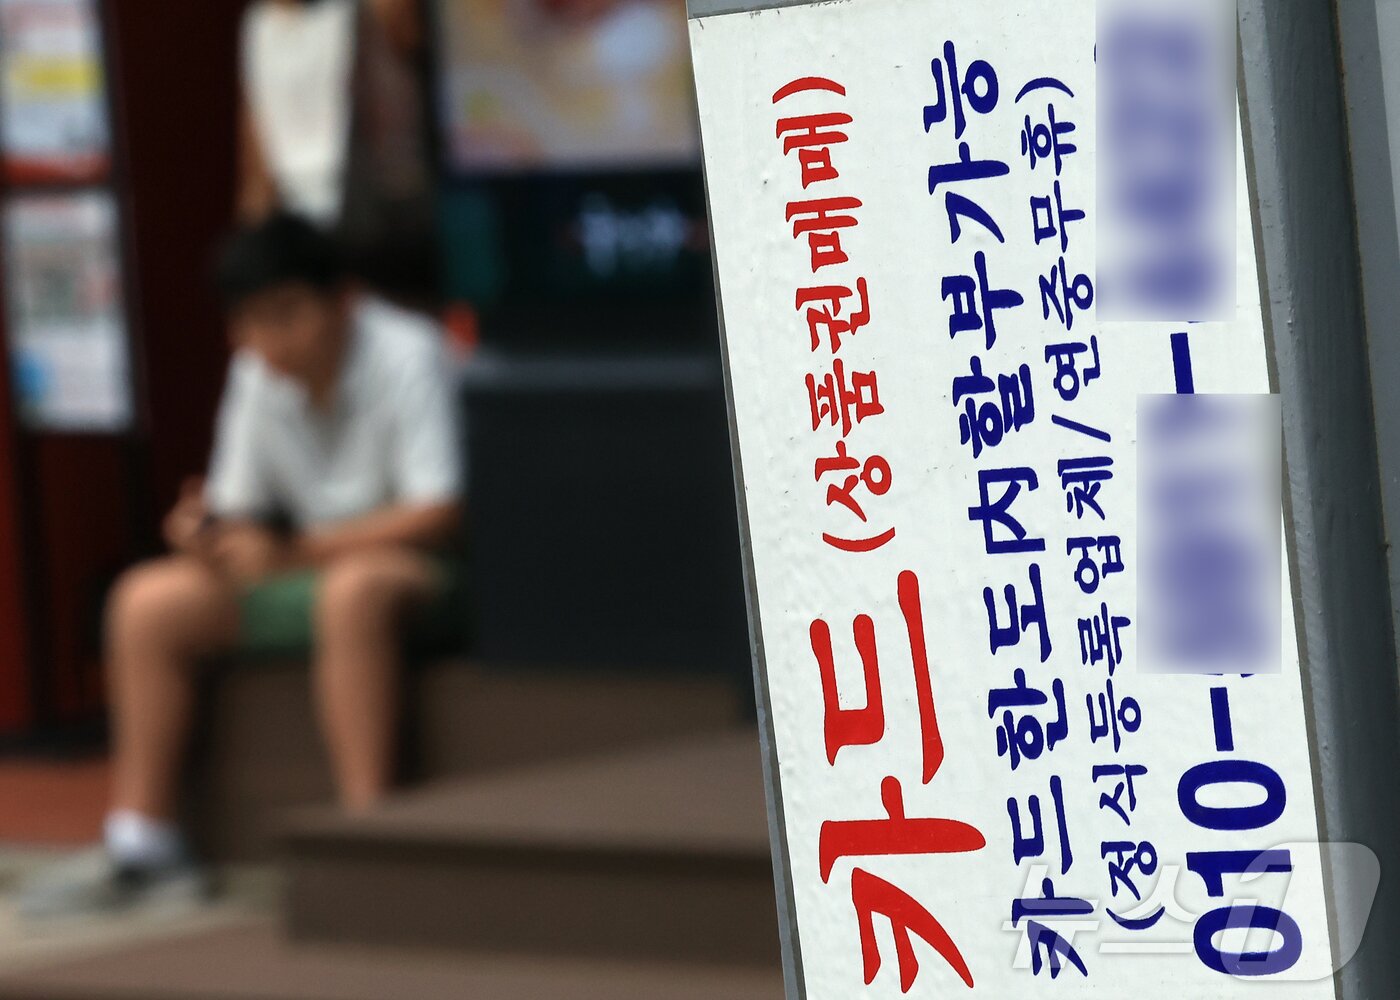 카드 (상품권매매)
카드한도내할부가능
(정식등록업체/연중무휴)
010-
뉴스1